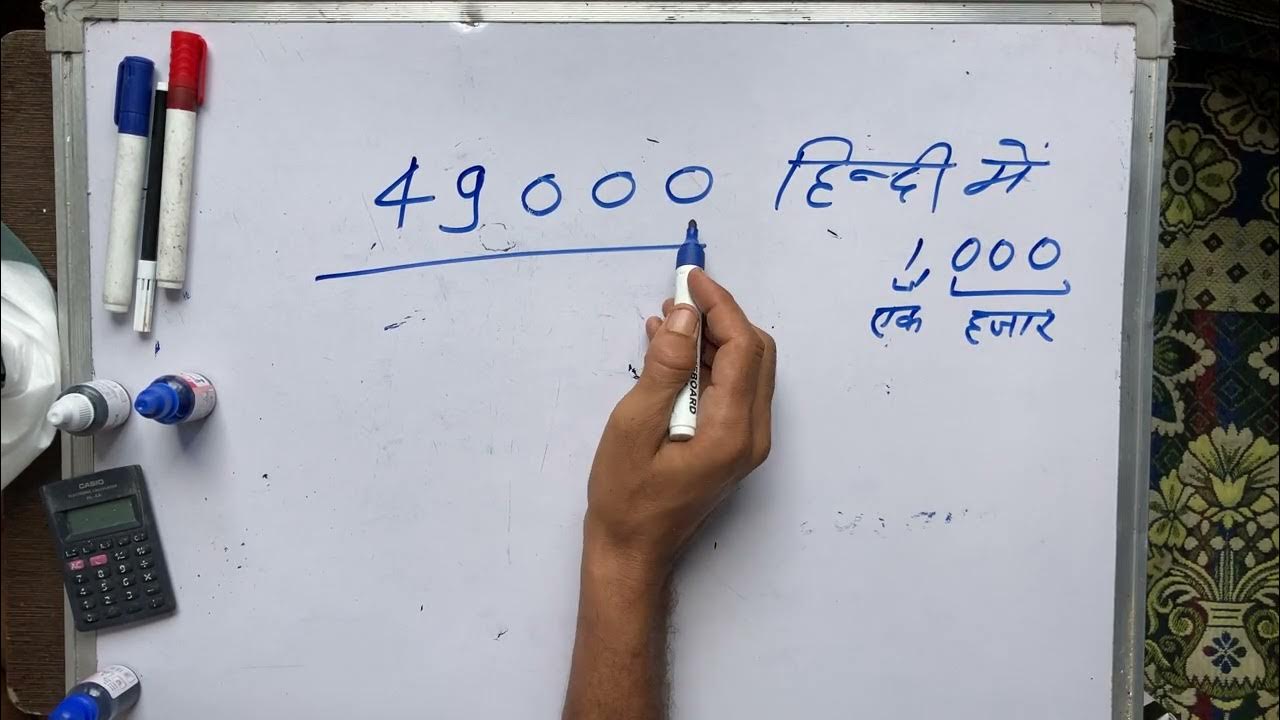 49000 हिन्दी में
1,000
एक हजार
CASIO
BOARD